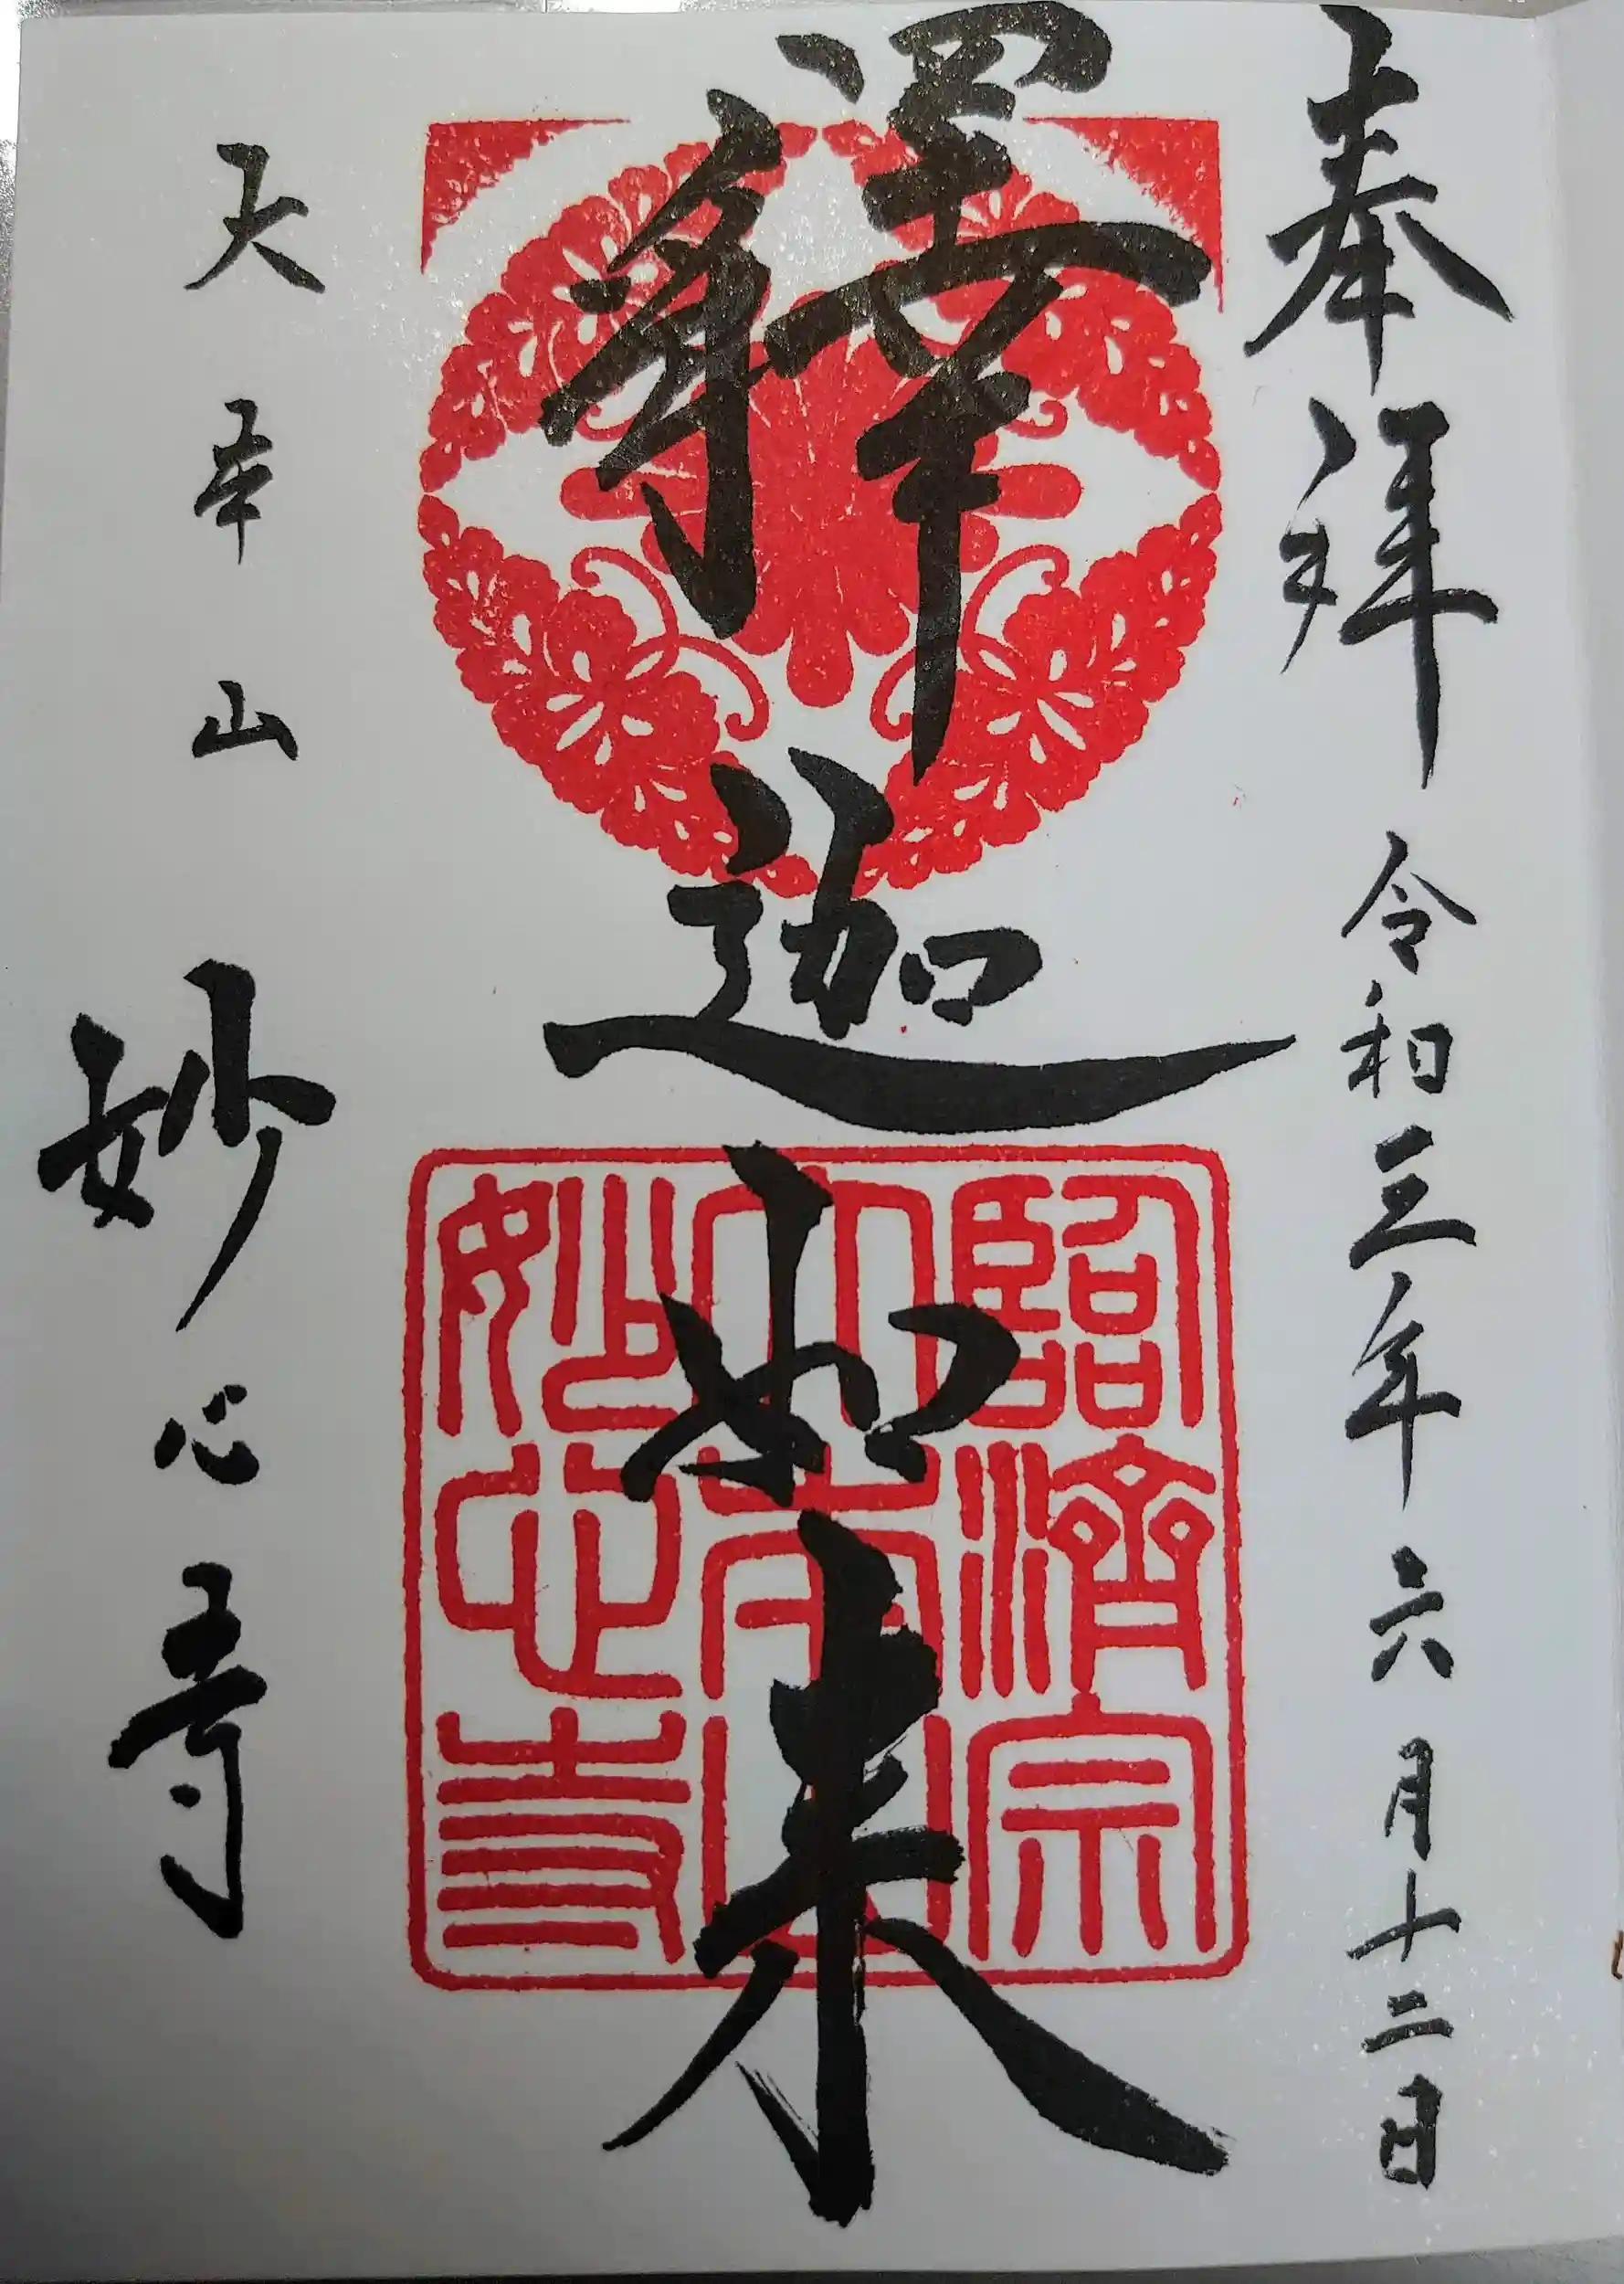 奉拝 令和三年六月十二日
釋迦如来
天 山 妙心寺
臨濟宗
妙心寺